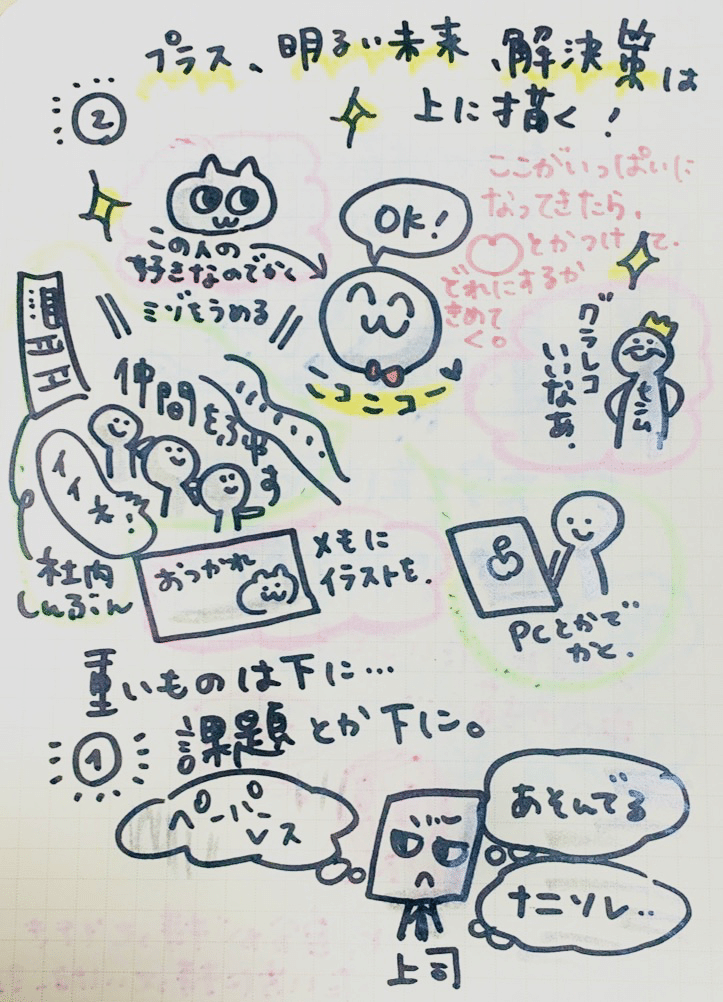 プラス、明るい未来、解決策は
上に描く!
②
ここがいっぱいに
なってきたら、
♡とかつけて、
どれにするか
きめて
く。
OK!
この人の
好きなのでかく
ミゾをうめる
ニコニコー
グラレコ
いいなあ。
仲間をふやす
イイネ!
社内
しんぶん
おつかれ
メモに
イラストを。
PCとかで
かと。
重いものは下に…
課題とか下に。
①
ペーパー
レス
あそんでる
ナニソレ..
上司